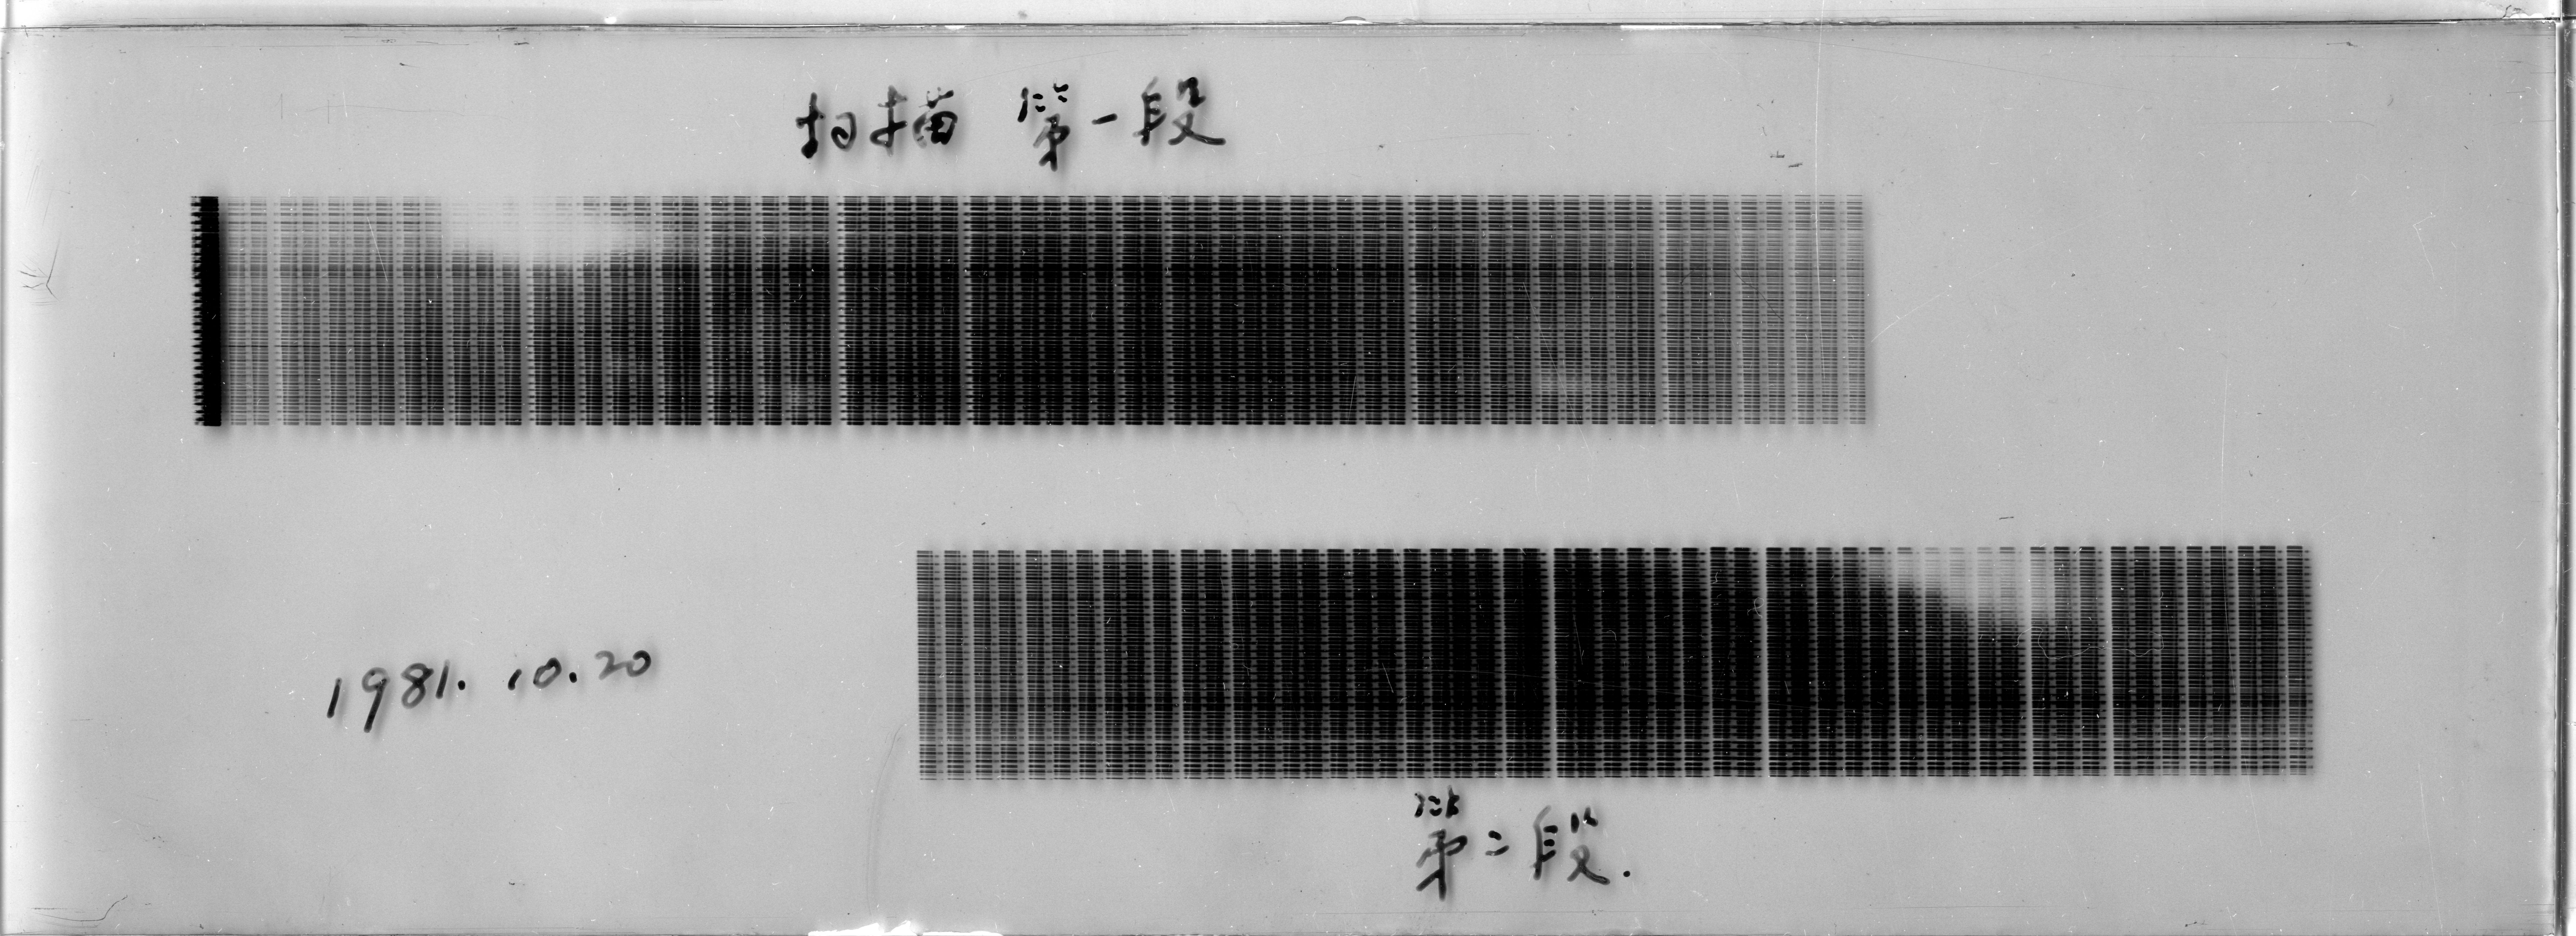 扫描 第一段
1981.10.20
第二段.